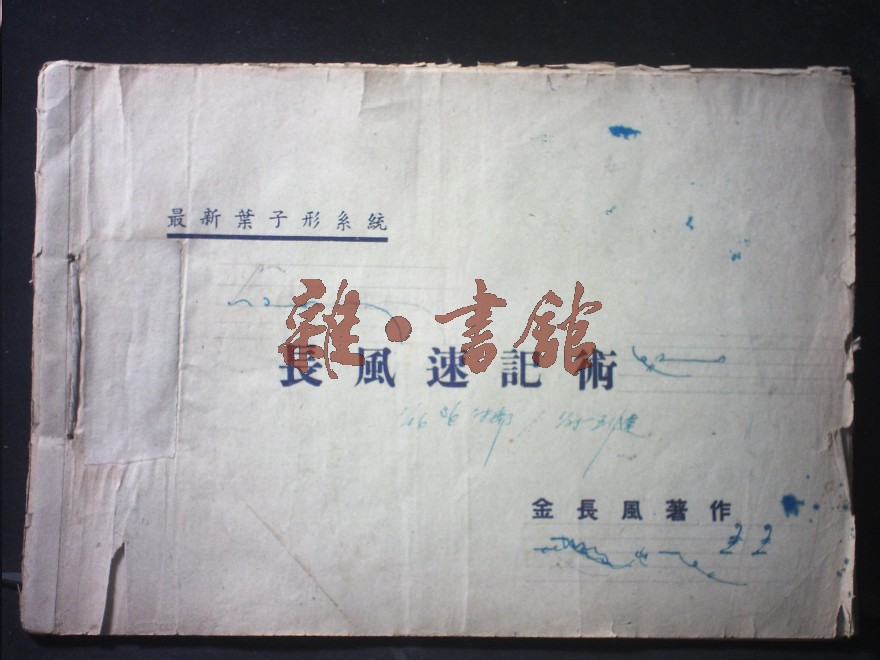 最新葉子形系統
雜·書館
長風速記術
金長風著作